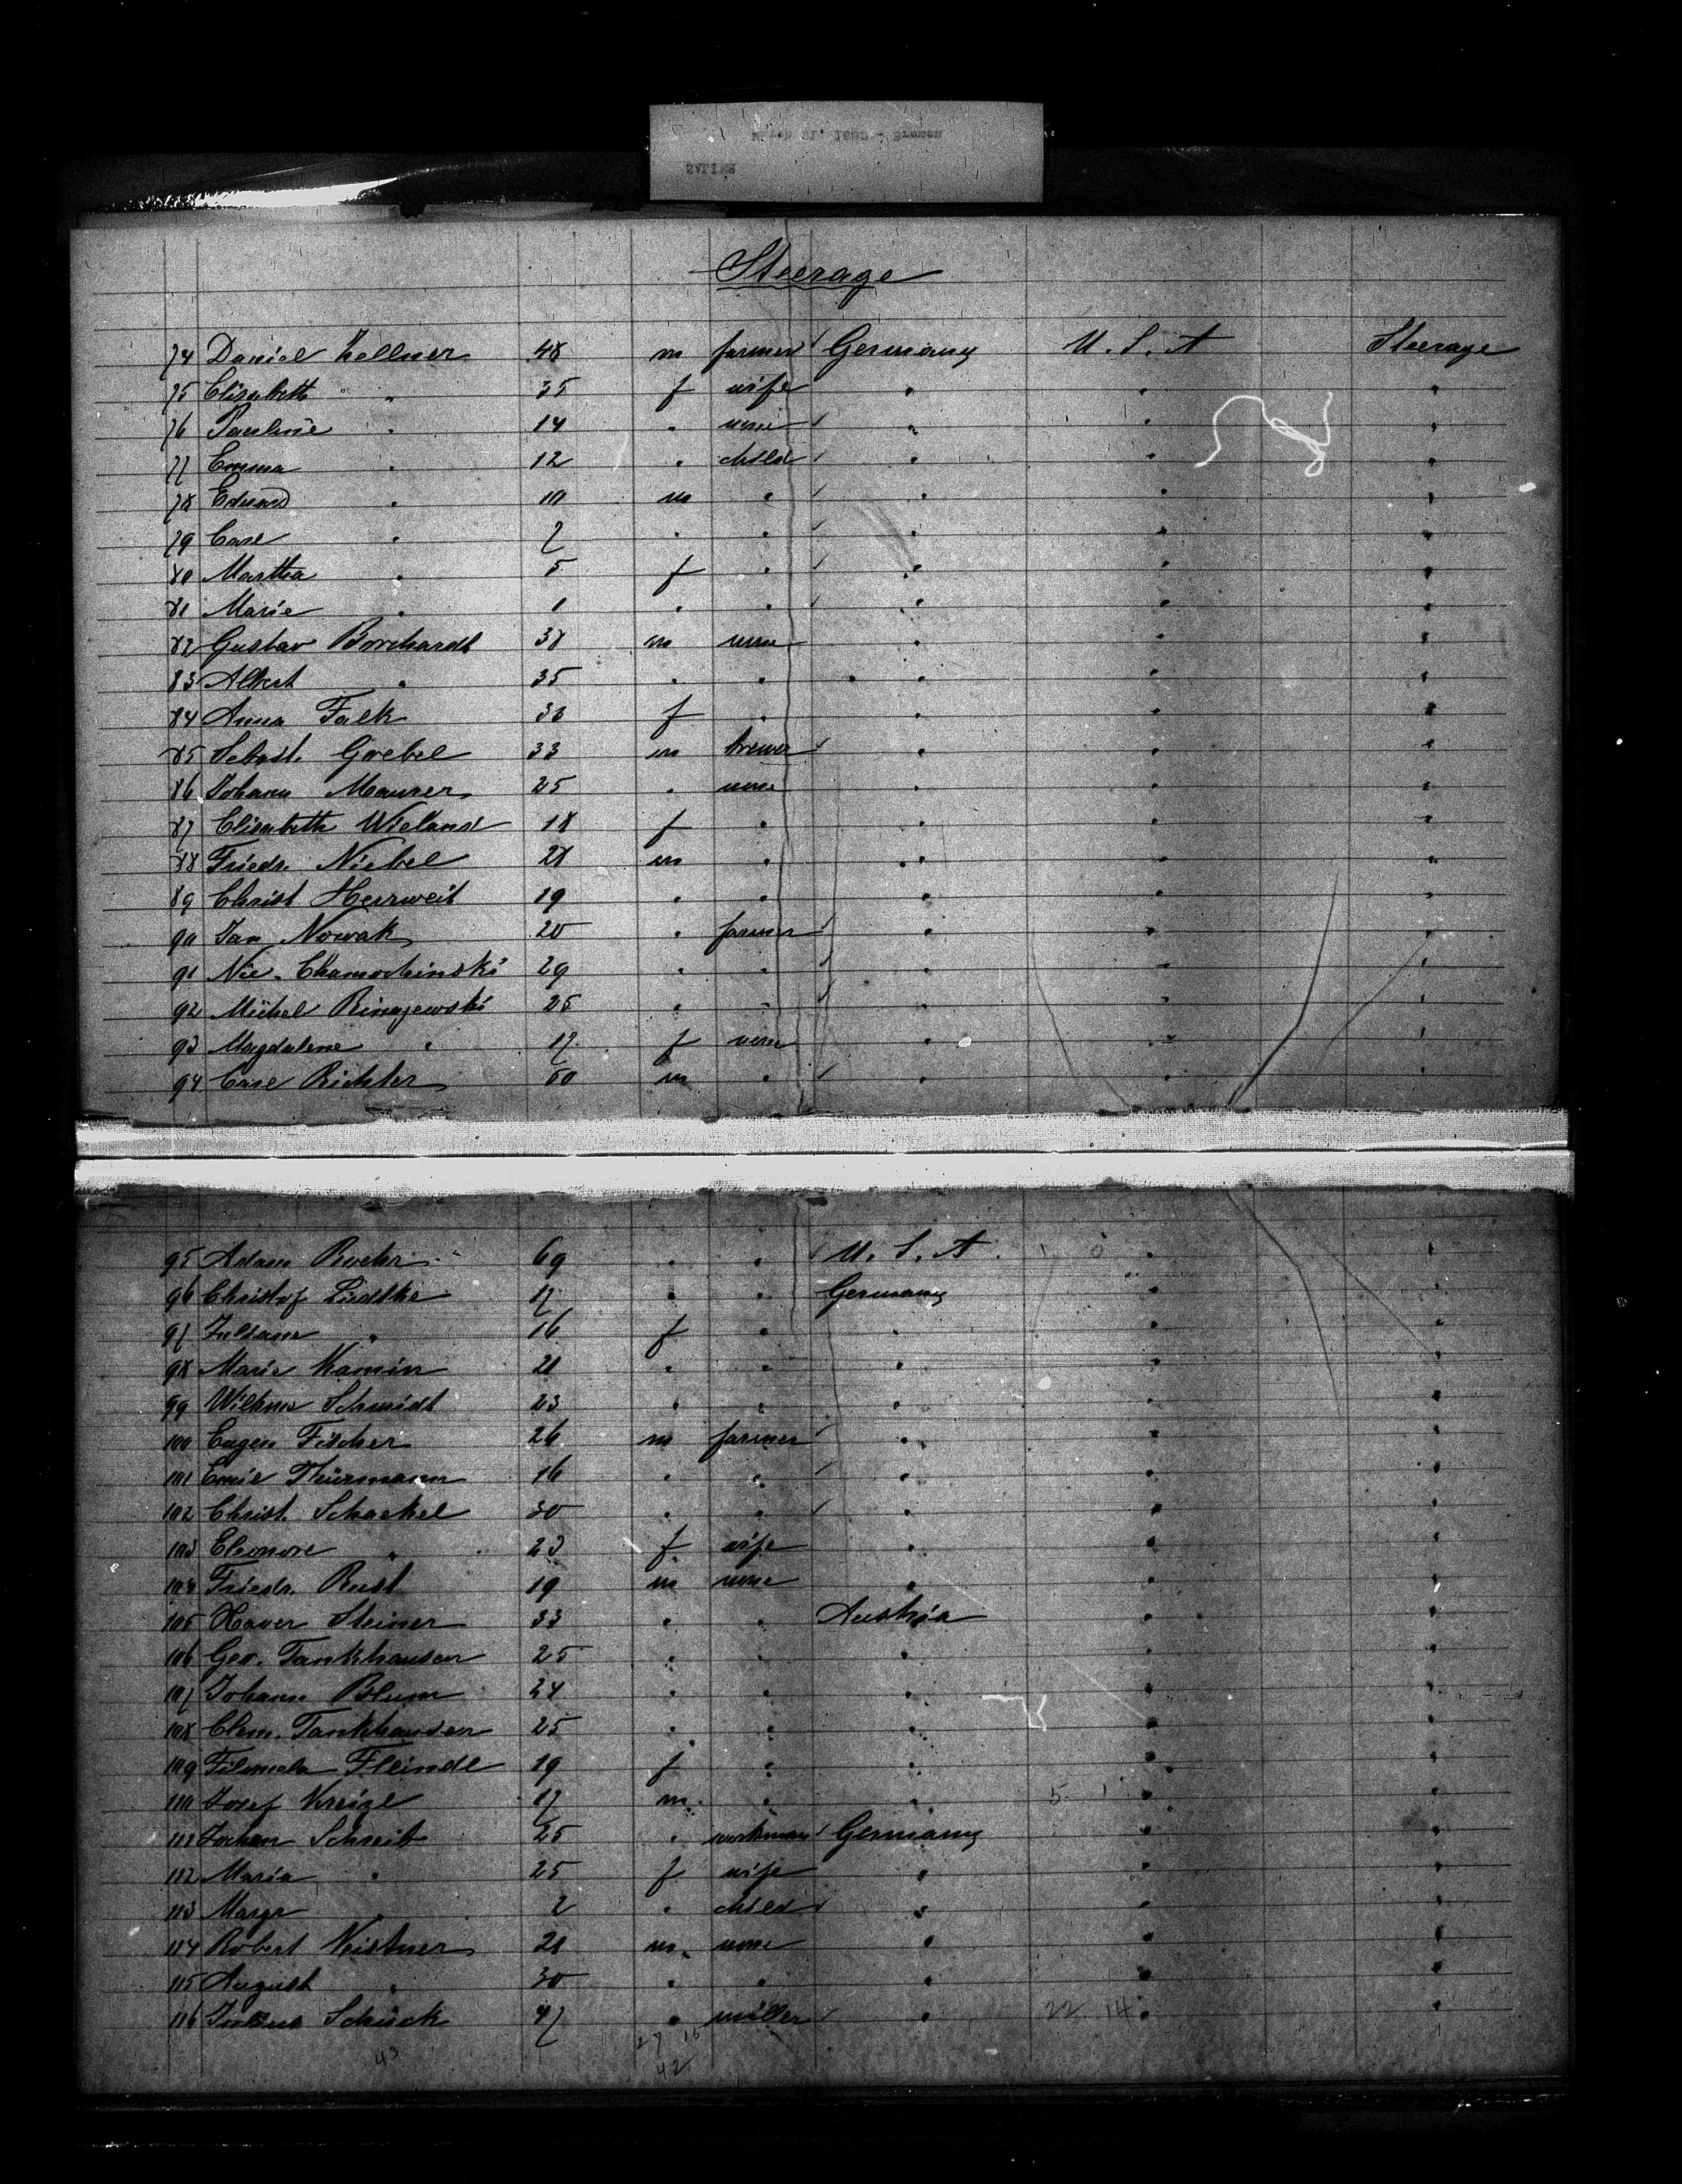 Steerage
74 Daniel Zellner 48 m farmer Germany U. S. A Steerage
75 Elisabeth " 35 f wife " " "
76 Pauline " 14 " none " " "
77 Emma " 12 " child " " "
78 Eduard " 10 m " " " "
79 Carl " 7 " " " " "
80 Martha " 5 f " " " "
81 Marie " 1 " " " " "
82 Gustav Borchardt 38 m none " " "
83 Albert " 35 " " " " "
84 Anna Falk 33 f " " " "
85 Sebast. Goebel 33 m brewer " " "
86 Johann Maurer 25 " none " " "
87 Elisabeth Wieland 18 f " " " "
88 Friedr. Niebel 28 m " " " "
89 Christ Herrweit 19 " " " " "
90 Jan Nowak 20 " farmer " " "
91 Nic. Chamochinski 29 " " " " "
92 Michel Rinajewski 25 " " " " "
93 Magdalene " 17 f none " " "
94 Carl Richter 50 m " " " "
95 Adam 69 " " U. S. A. " "
96 Christof Lüdtke 17 " " Germany " "
97 " 16 f " " " "
98 Marie Kamin 21 " " " " "
99 Wilhme Schmidt 23 " " " " "
100 Eugen Fischer 26 m farmer " " "
101 Emil Thürmann 16 " " " " "
102 Christ. Schaekel 30 " " " " "
103 Eleonore " 23 f wife " " "
104 Friedr. Rust 19 m none " " "
105 Xaver Steiner 33 " " Austria " "
106 Geo. Tankhauser 25 " " " " "
107 Johann Blum 24 " " " " "
108 Clem. Tankhauser 25 " " " " "
109 Filomela Fleindl 19 f " " " "
110 Josef Kreizl 17 m " " 5 1 " "
111 Jochen Schreib 25 " workman Germany " "
112 Maria " 25 f wife " " "
113 Margr " 2 " child " " "
114 Robert Neistner 21 m none " " "
115 August " 30 " " " " "
116 Julius Schück 47 " miller " 22 14 " "
43 27 15
42